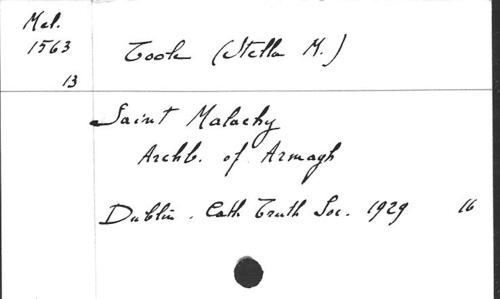 Mel.
1563
13
Toole (Stella M.)
Saint Malachy
Archb. of Armagh
Dublin. Cath Truth Soc. 1929 16